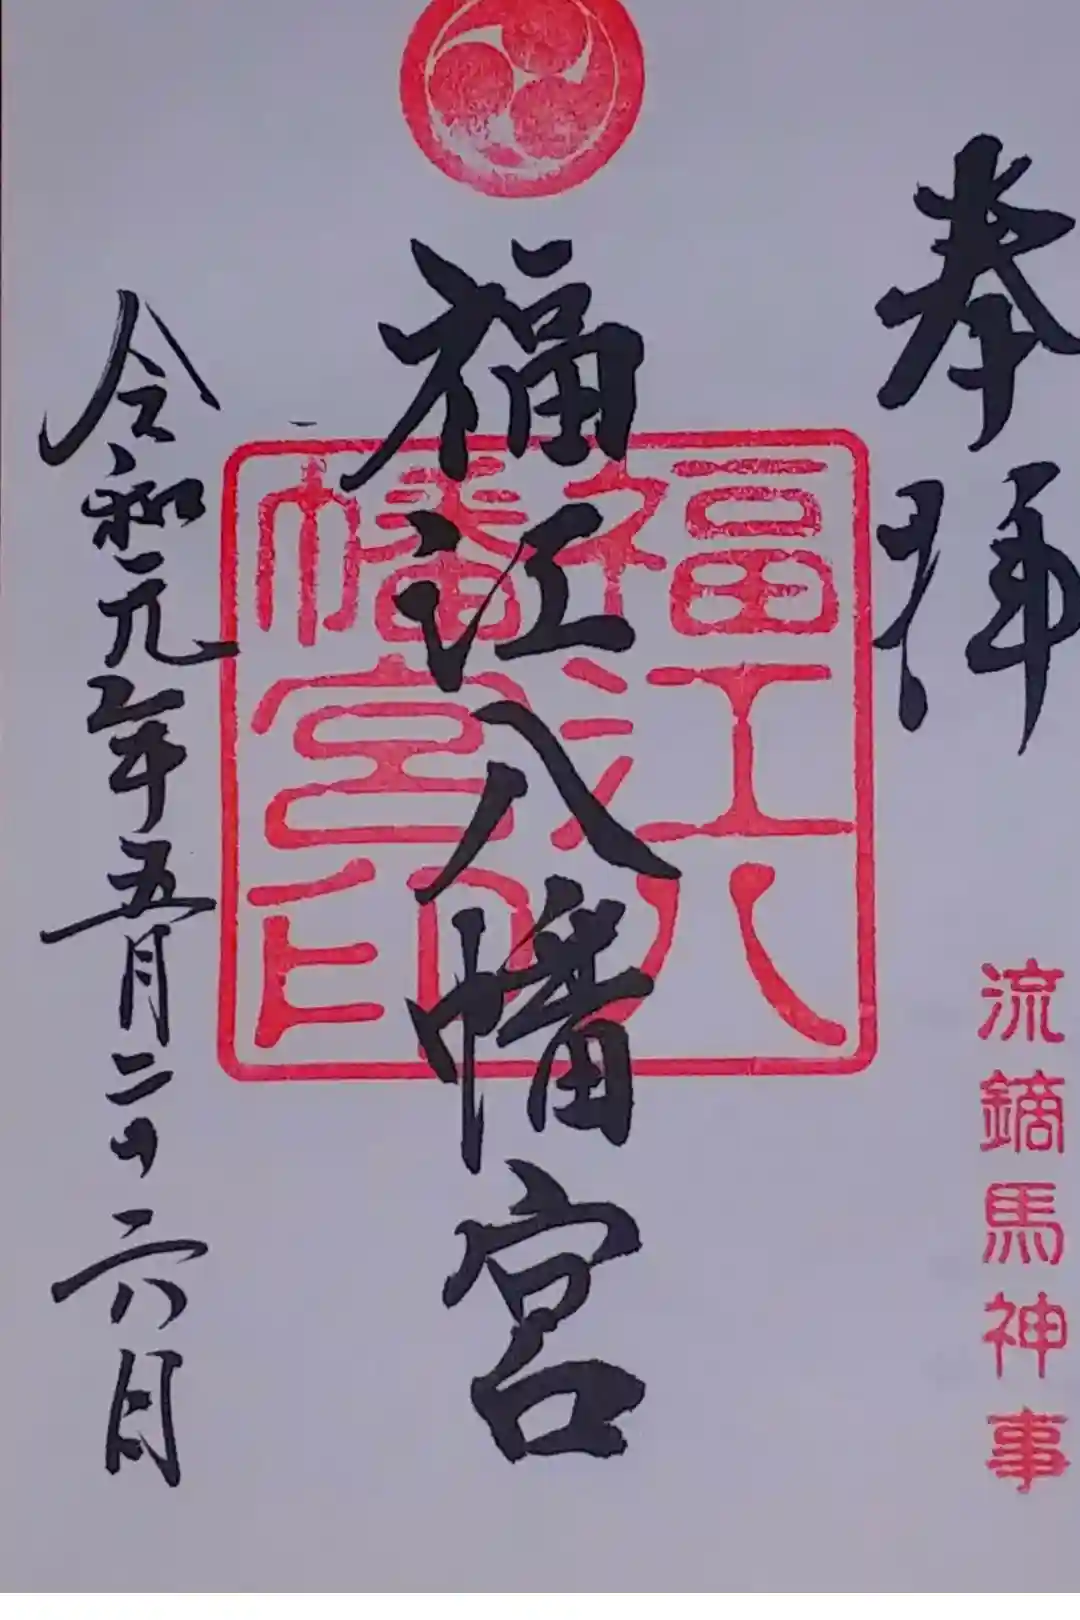 奉拝
流鏑馬神事
福江八幡宮
福江八
幡宮印
令和元年五月二十六日